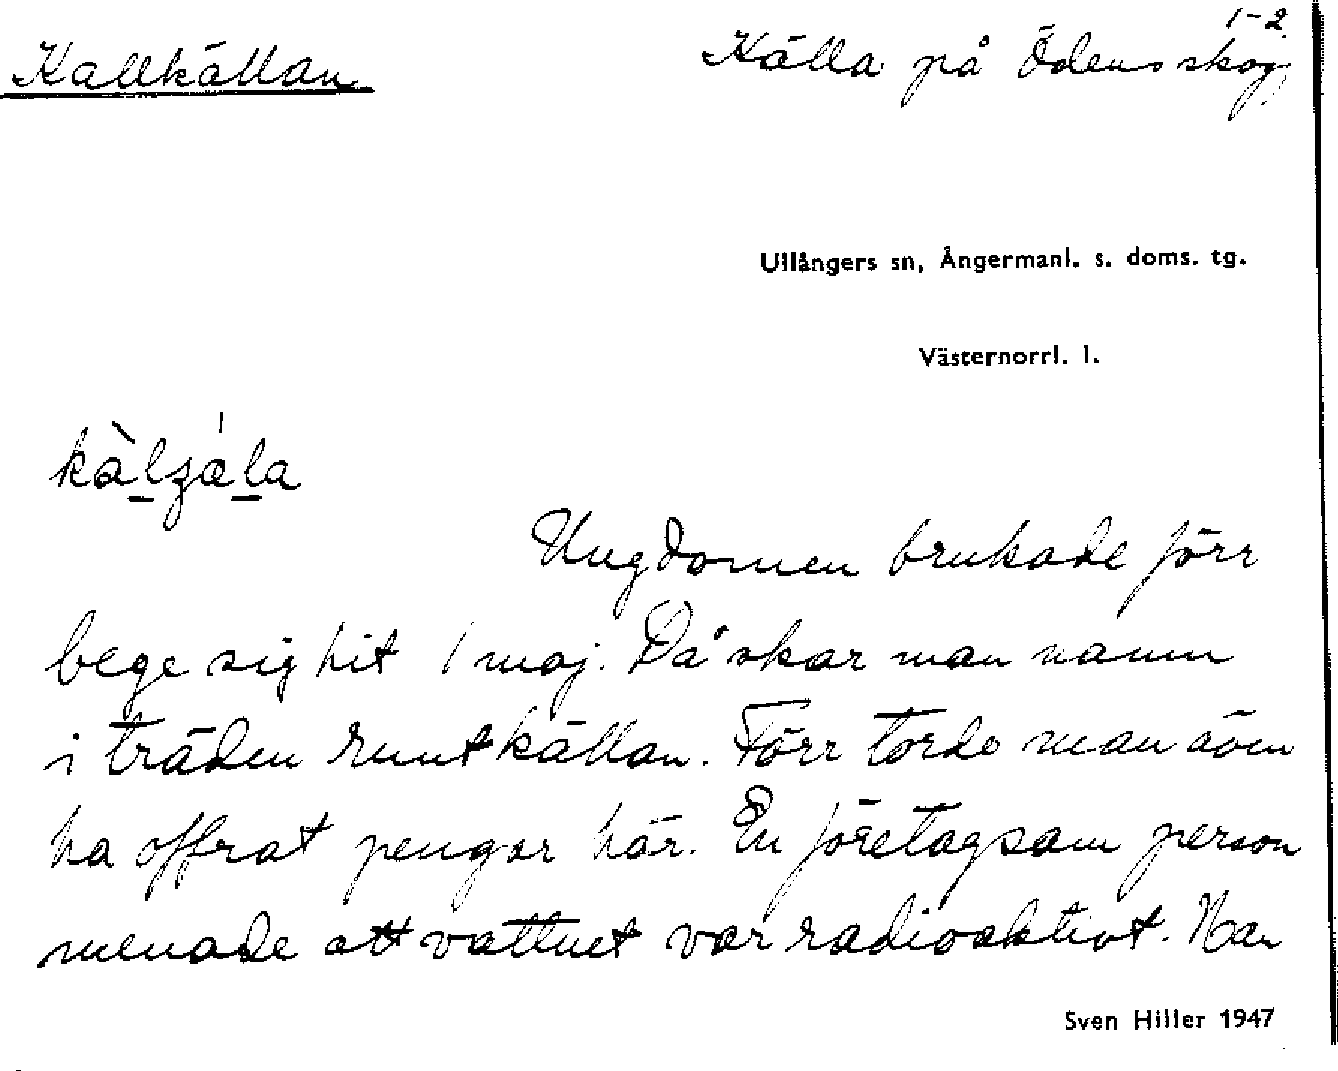 1-2.
Kallkällan Källa på Ödens skog,
Ullångers sn, Ångermanl. s. doms. tg.
Västernorrl. l.
Ungdomen brukade förr
bege sig hit 1 maj. Då skar man namn
i träden runt källan. Förr torde man även
ha offrat pengar här. En företagsam person
menade att vattnet var radioaktivt. Han
Sven Hiller 1947